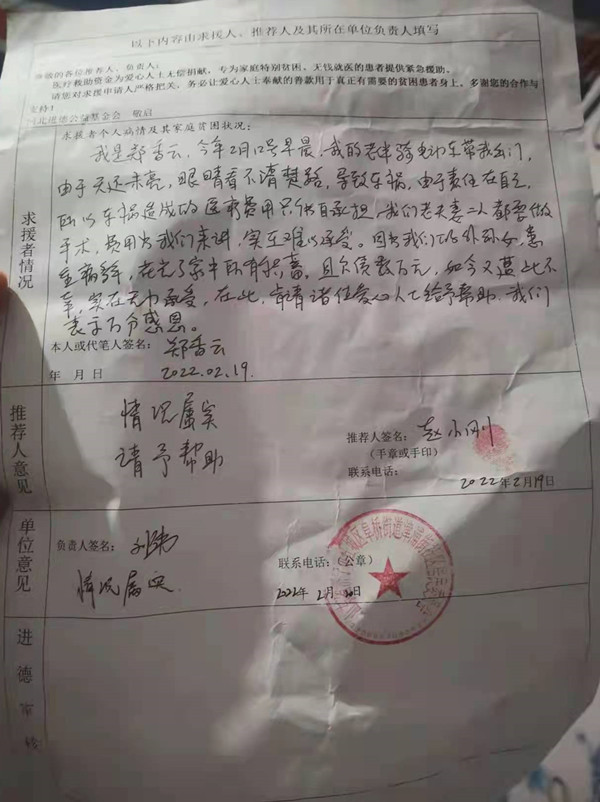 以下内容由求援人、推荐人及其所在单位负责人填写
尊敬的各位推荐人、负责人:
医疗救助资金为爱心人士无偿捐献,专为家庭特别贫困、无钱就医的患者提供紧急援助。
请您对求援申请人严格把关,务必让爱心人士奉献的善款用于真正有需要的贫困患者身上。多谢您的合作与
支持!
河北进德公益基金会 敬启
求援者情况
求援者个人病情及其家庭贫困状况:
我是郑香云,今年2月12号早晨,我的老伴骑电动车带我出门,
由于天还未亮,眼睛看不清楚路,导致车祸,由于责任在自己,
所以车祸造成的医疗费用只能自承担,我们老夫妻二人都要做
手术,费用为我们来讲,实在难以承受。因为我们的外孙女患
花光了家中所有积蓄,且欠债数万元,如今又遭此不
幸,实在无力承受,在此,恳请诸位爱心人士给予帮助,我们
表示万分感恩。
本人或代笔人签名: 郑香云
年 月 日 2022.02.19.
推荐人意见
情况属实
请予帮助
推荐人签名: 赵小刚
(手章或手印)
联系电话:
2022年2月19日
单位意见
负责人签名:
联系电话:(公章)
情况属实
2022年2月20日
进德审核